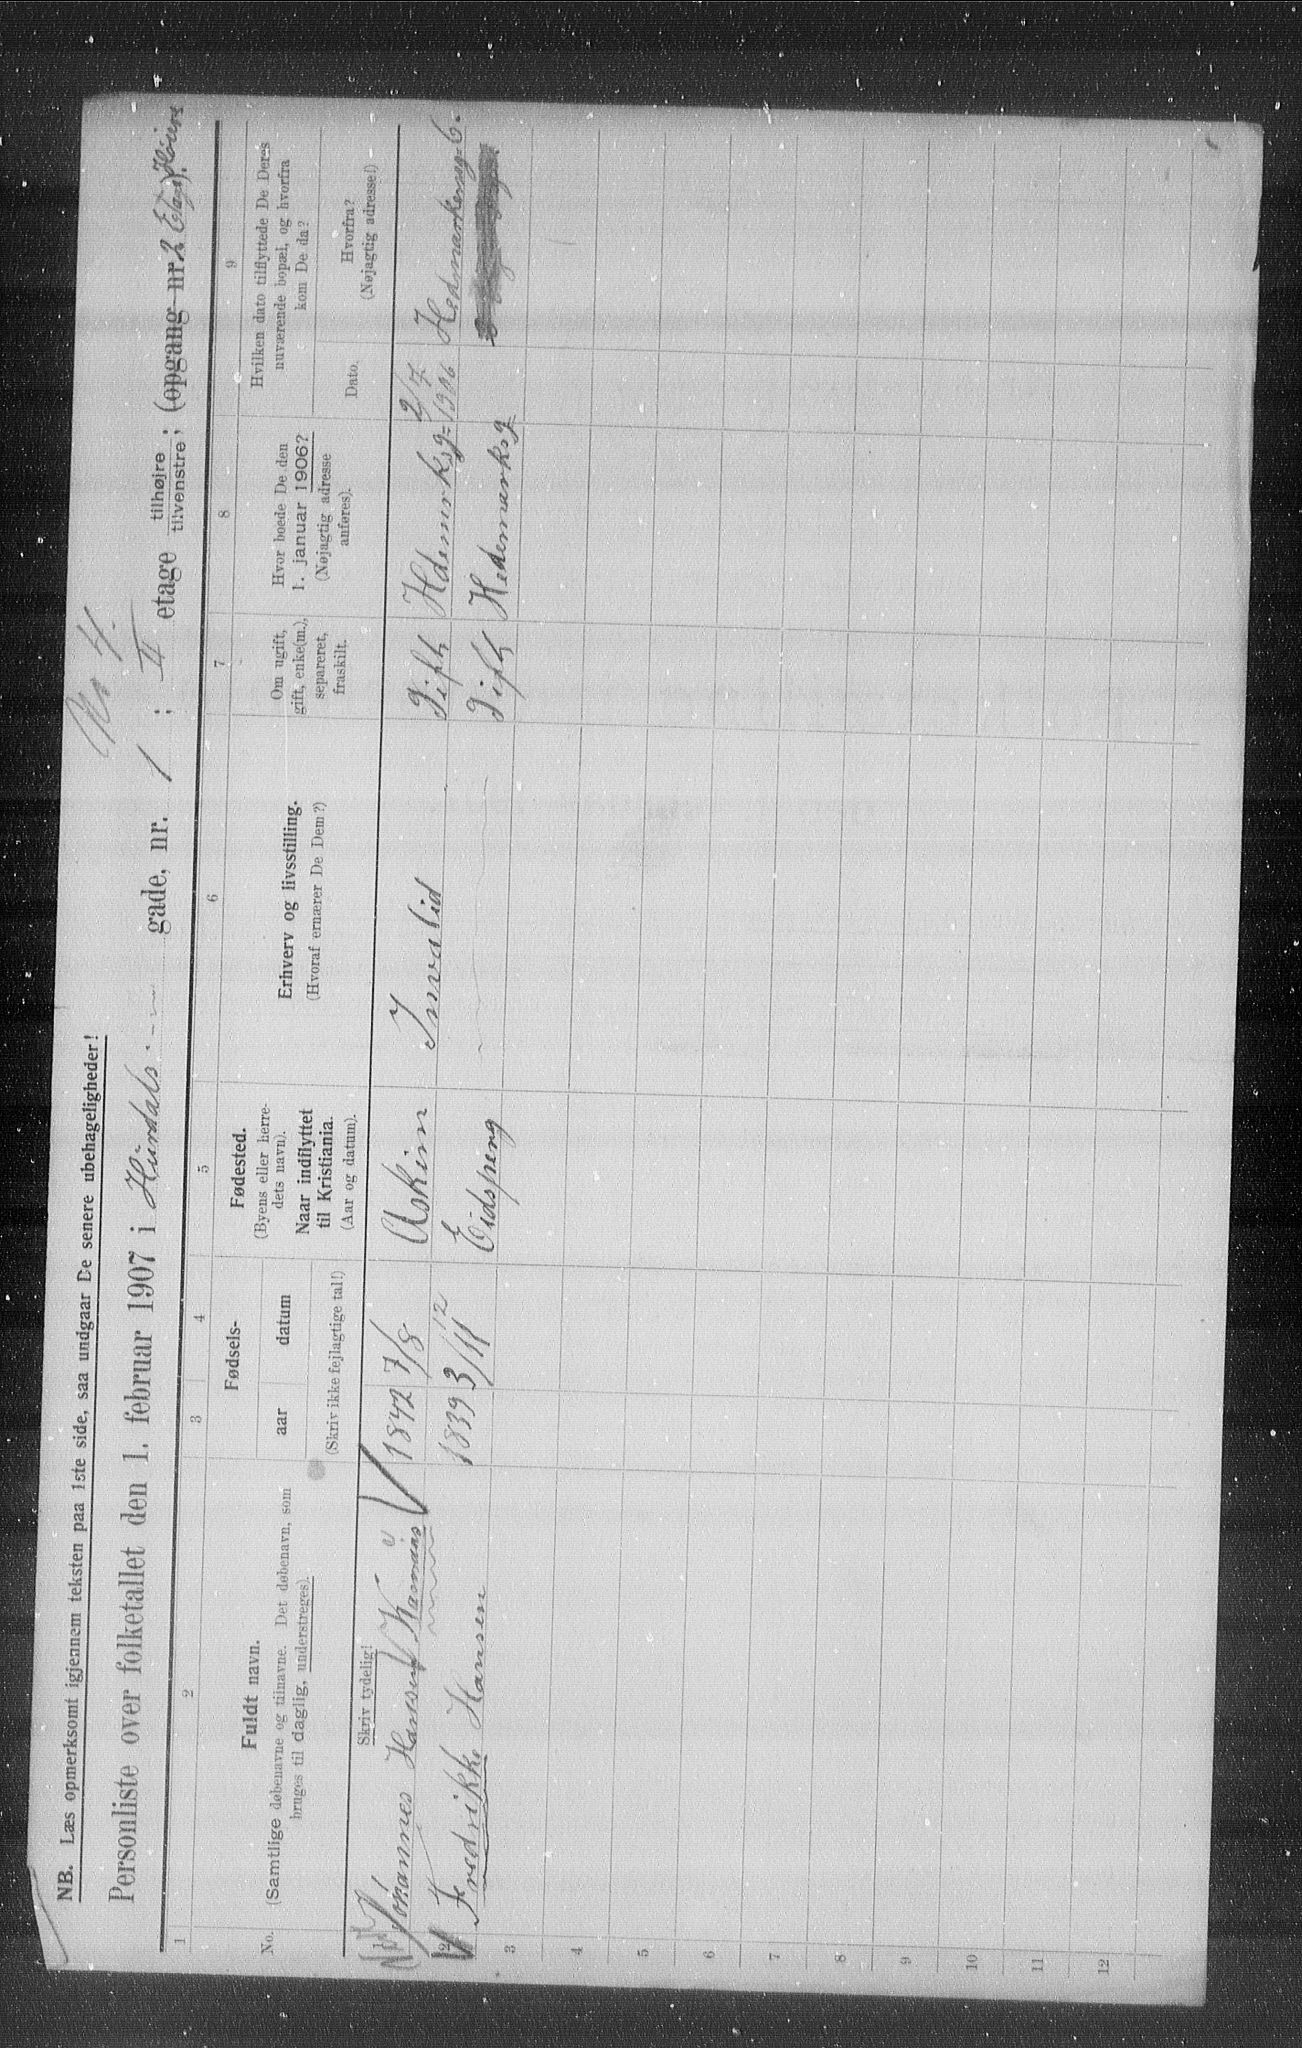 No 4.
NB. Læs opmerksomt igjennem teksten paa 1ste side, saa undgaar De senere ubehageligheder!
Personliste over folketallet den 1. februar 1907 i Hurdals gade, nr. 1 ; II etage tilhøjre tilvenstre ; (opgang nr. 2
1 2 3 4 5 6 7 8 9
No.
Fuldt navn.
(Samtlige døbenavne og tilnavne. Det døbenavn, som
bruges til daglig, understreges).
Fødsels-
aar datum
(Skriv ikke fejlagtige tal!)
Fødested.
(Byens eller herre-
dets navn).
Naar indflyttet
til Kristiania.
(Aar og datum).
Erhverv og livsstilling.
(Hvoraf ernærer De Dem?)
Om ugift,
gift, enke(m.),
separeret,
fraskilt.
Hvor boede De den
1. januar 1906?
(Nøjagtig adresse
anføres).
Hvilken dato tilflyttede De Deres
nuværende bopæl, og hvorfra
kom De da?
Dato.
Hvorfra?
(Nøjagtig adresse!)
Skriv tydelig!
1 Johannes Hansen 1842 7/8 Askim Invalid Gift Hdemrksg= 2/7 1906 Hedmarkensg= 6.
2 Fredrikke Hansen 1839 3/11 12 Eidsperg Gift Hedemarksg
3
4
5
6
7
8
9
10
11
12